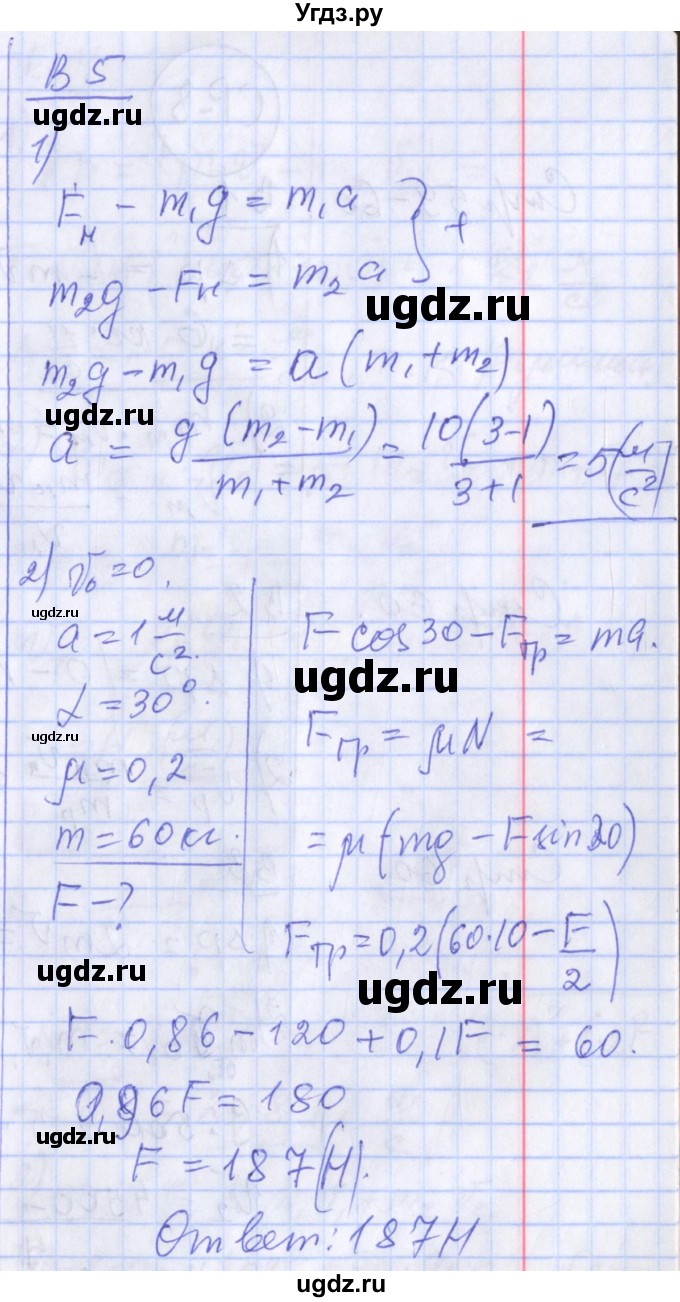 Угдз.ру
В 5
ugdz.ru
1)
Fн − m₁g = m₁a } +
m₂g − Fн = m₂a
ugdz.ru
m₂g − m₁g = a (m₁ + m₂)
ugdz.ru
a = g (m₂ − m₁) / (m₁ + m₂) = 10(3−1) / (3+1) = 5 (м/с²)
2) V₀ = 0.
ugdz.ru
a = 1 м/с².
F cos 30 − Fтр = ma.
ugdz.ru
α = 30°.
ugdz.ru
Fтр = μN =
μ = 0,2
m = 60 кг.
= μ(mg − F sin 30)
F − ?
Fтр = 0,2(60·10 − F/2)
ugdz.ru
ugdz.ru
F · 0,86 − 120 + 0,1F = 60.
0,96F = 180
ugdz.ru
F = 187(Н).
Ответ: 187Н
ugdz.ru